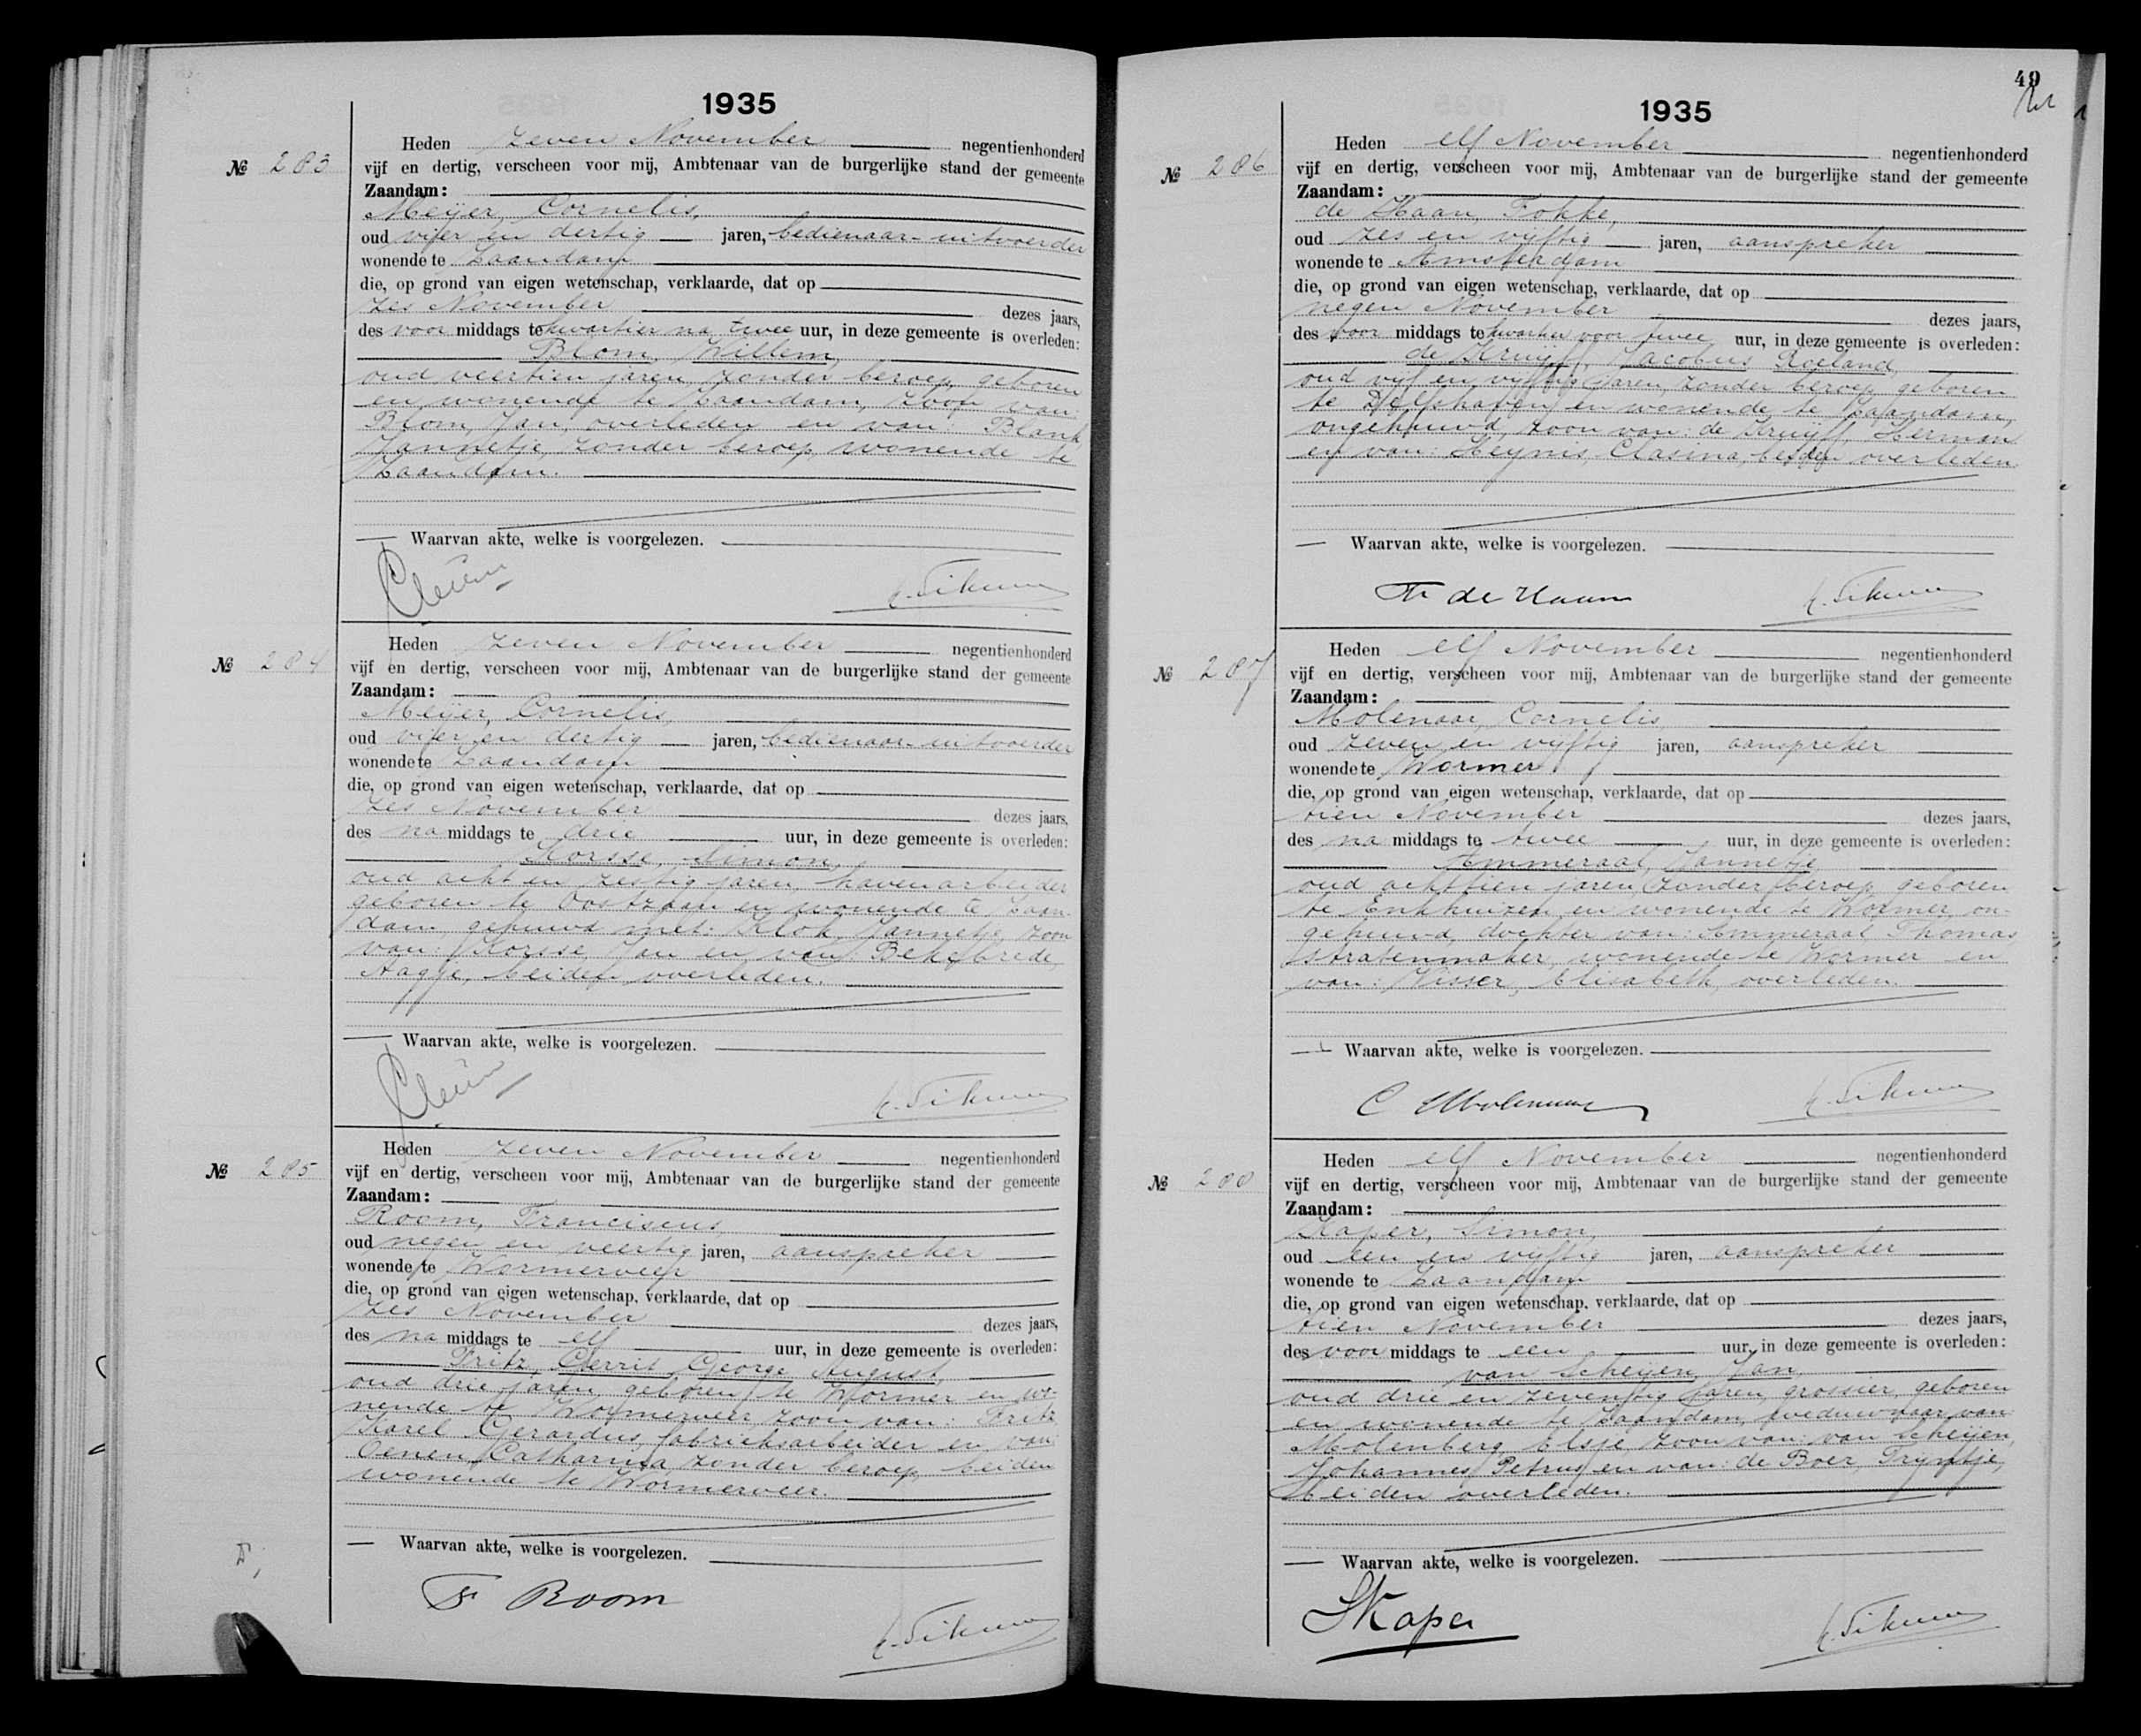 1935
Nº 283
Heden zeven November negentienhonderd
vijf en dertig, verscheen voor mij, Ambtenaar van de burgerlijke stand der gemeente
Zaandam:
Meijer, Cornelis,
oud vijfer en dertig jaren, bedienaar-uitvoerder
wonende te Zaandam
die, op grond van eigen wetenschap, verklaarde, dat op
zes November dezes jaars,
des voor middags te kwartier na twee uur, in deze gemeente is overleden:
Blom, Willem,
oud veertien jaren, zonder beroep, geboren
en wonende te Zaandam, zoon van:
Blom, Jan, overleden en van: Blank,
Jannetje, zonder beroep, wonende te
Zaandam.
Waarvan akte, welke is voorgelezen.
Nº 284
Heden zeven November negentienhonderd
vijf en dertig, verscheen voor mij, Ambtenaar van de burgerlijke stand der gemeente
Zaandam:
Meijer, Cornelis,
oud vijfer en dertig jaren, bedienaar-uitvoerder
wonende te Zaandam
die, op grond van eigen wetenschap, verklaarde, dat op
zes November dezes jaars,
des na middags te drie uur, in deze gemeente is overleden:
Korsse, Simon,
oud acht en zestig jaren, havenarbeider
geboren te Oostzaan en wonende te Zaan-
dam, gehuwd met: Klok, Jannetje, zoon
van: Korsse, Jan en van: Bekebrede,
Aagje, beiden overleden.
Waarvan akte, welke is voorgelezen.
Nº 285
Heden zeven November negentienhonderd
vijf en dertig, verscheen voor mij, Ambtenaar van de burgerlijke stand der gemeente
Zaandam:
Room, Franciscus,
oud negen en veertig jaren, aanspreker
wonende te Wormerveer
die, op grond van eigen wetenschap, verklaarde, dat op
zes November dezes jaars,
des na middags te elf uur, in deze gemeente is overleden:
Fritz, Gerrit George August,
oud drie jaren, geboren te Wormer en wo-
nende te Wormerveer, zoon van: Fritz,
Karel Gerardus, fabrieksarbeider en van:
Oenen, Catharina, zonder beroep, beiden
wonende te Wormerveer.
Waarvan akte, welke is voorgelezen.
F Room
49
1935
Nº 286
Heden elf November negentienhonderd
vijf en dertig, verscheen voor mij, Ambtenaar van de burgerlijke stand der gemeente
Zaandam:
de Haan, Fokke,
oud zes en vijftig jaren, aanspreker
wonende te Amsterdam
die, op grond van eigen wetenschap, verklaarde, dat op
negen November dezes jaars,
des voor middags te kwartier voor twee uur, in deze gemeente is overleden:
de Kruyff, Jacobus Roeland,
oud vijf en vijftig jaren, zonder beroep, geboren
te Delfshaven en wonende te Zaandam,
ongehuwd, zoon van: de Kruyff, Herman
en van: Heynis, Clasina, beiden overleden
Waarvan akte, welke is voorgelezen.
Fr de Haan
Nº 287
Heden elf November negentienhonderd
vijf en dertig, verscheen voor mij, Ambtenaar van de burgerlijke stand der gemeente
Zaandam:
Molenaar, Cornelis
oud zeven en vijftig jaren, aanspreker
wonende te Wormer
die, op grond van eigen wetenschap, verklaarde, dat op
tien November dezes jaars,
des na middags te twee uur, in deze gemeente is overleden:
Ammeraal, Jannetje
oud achttien jaren, zonder beroep, geboren
te Enkhuizen en wonende te Wormer, on-
gehuwd, dochter van: Ammeraal, Thomas,
stratenmaker, wonende te Wormer en
van: Visser, Elisabeth, overleden.
Waarvan akte, welke is voorgelezen.
C Molenaar
Nº 288
Heden elf November negentienhonderd
vijf en dertig, verscheen voor mij, Ambtenaar van de burgerlijke stand der gemeente
Zaandam:
Kaper, Simon,
oud een en vijftig jaren, aanspreker
wonende te Zaandam
die, op grond van eigen wetenschap, verklaarde, dat op
tien November dezes jaars,
des voor middags te een uur, in deze gemeente is overleden:
van Scheijen, Jan,
oud drie en zeventig jaren, grossier, geboren
en wonende te Zaandam, weduwnaar van:
Molenberg, Elsje, zoon van: van Scheijen,
Johannes Petrus en van: de Boer, Trijntje,
beiden overleden.
Waarvan akte, welke is voorgelezen.
S Kaper